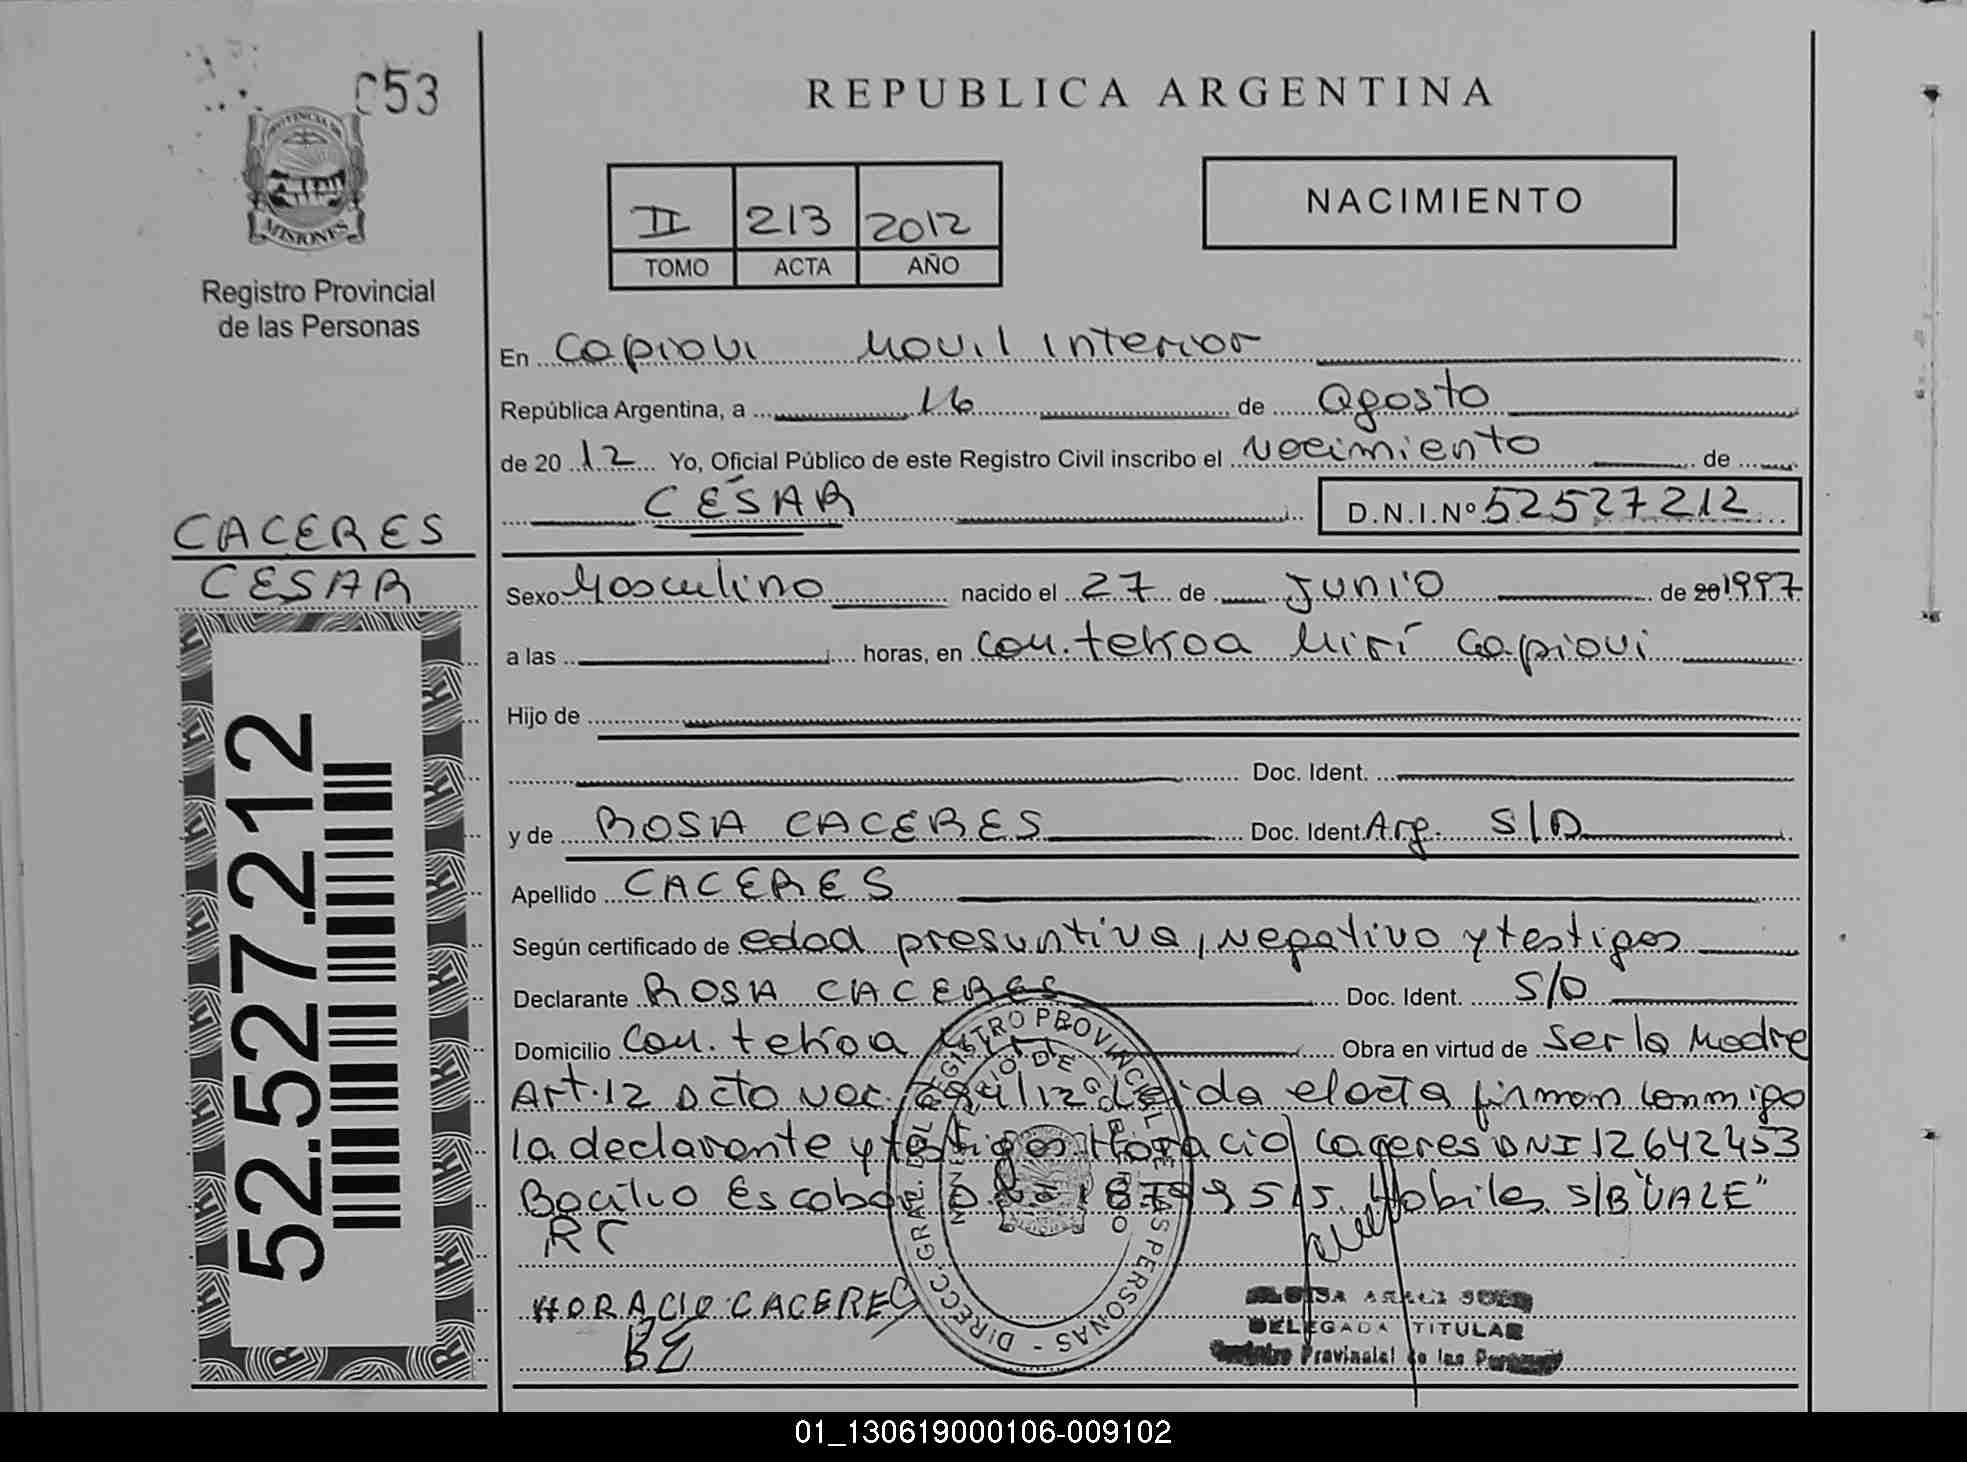 053
PROVINCIA DE
MISIONES
Registro Provincial
de las Personas
CACERES
CESAR
52.527.212
REPUBLICA ARGENTINA
II 213 2012
TOMO ACTA AÑO
NACIMIENTO
En Capiovi Movil Interior
República Argentina, a 16 de agosto
de 20 12 Yo, Oficial Público de este Registro Civil inscribo el Nacimiento de
CÉSAR D.N.I.Nº 52527212
Sexo Masculino nacido el 27 de JUNIO de 20 1997
a las horas, en Com. tekoa Mirí Capiovi
Hijo de
Doc. Ident.
y de ROSA CACERES Doc. Ident. Arg. S/D
Apellido CACERES
Según certificado de edad presuntiva, negativo y testigos
Declarante ROSA CACERES Doc. Ident. S/D
Domicilio Com. tekoa Obra en virtud de ser la Madre
Art. 12 Dcto Nac. da el acta firman conmigo
la declarante y testigos Horacio Caceres DNI 12642453
Bacilio Escobar Hobiles S/B "VALE"
RC
HORACIO CACERES
BE
DIRECC. GRAL. DEL REGISTRO PROVINCIAL DE LAS PERSONAS
DELEGADA TITULAR
Registro Provincial de las Personas
01_130619000106-009102